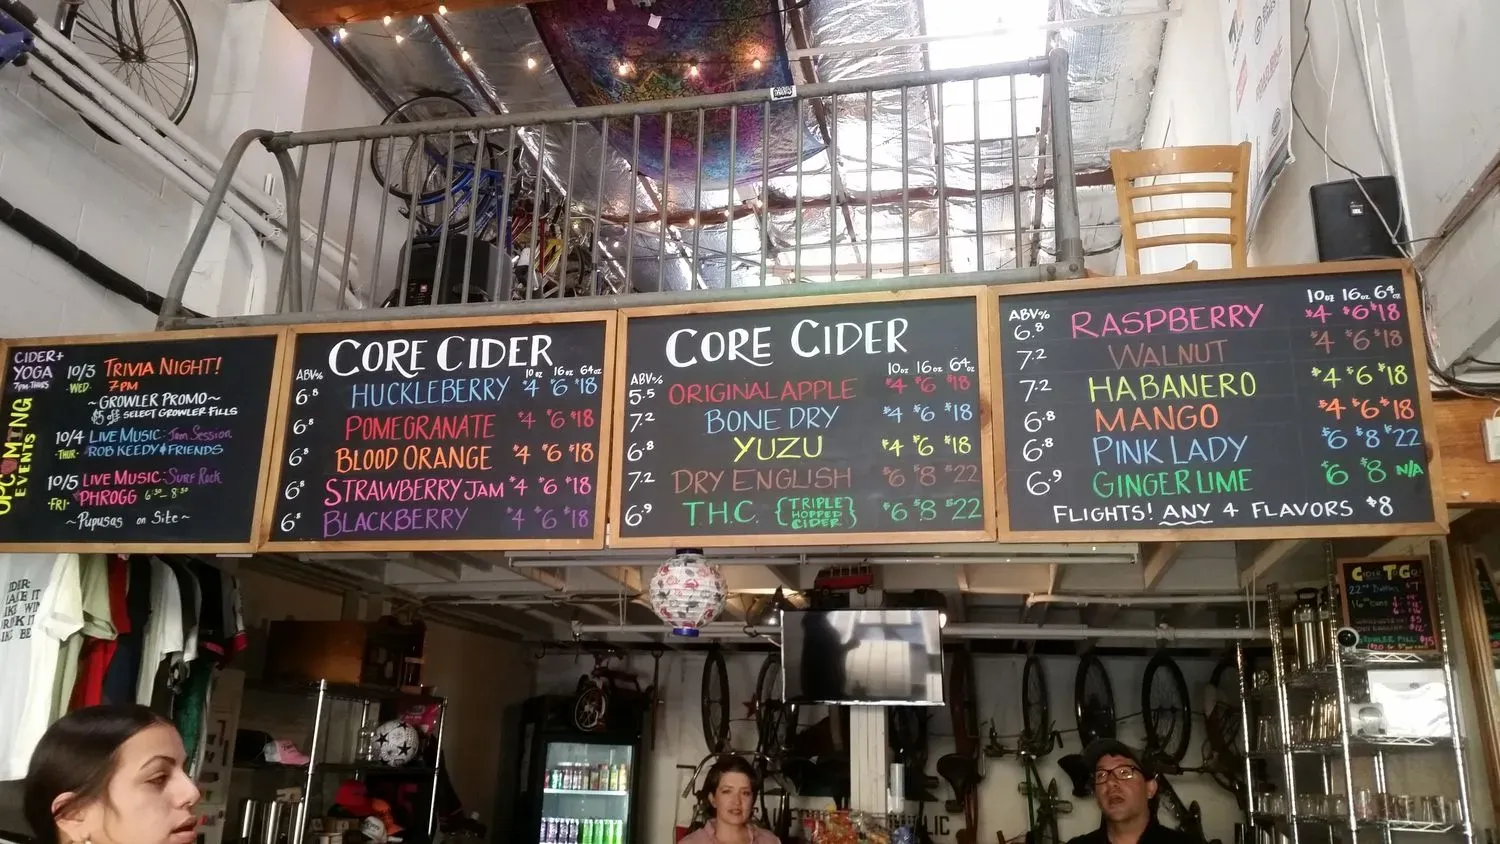 CIDER+
YOGA
7PM THURS
UPCOMING
EVENTS
10/3 TRIVIA NIGHT!
-WED- 7PM
~GROWLER PROMO~
$5 off SELECT GROWLER FILLS
10/4 LIVE MUSIC: Jam Session
-THUR- ROB KEEDY & FRIENDS
10/5 LIVE MUSIC: Surf Rock
-FRI- PHROGG 6:30-8:30
~Pupusas on Site~
CORE CIDER
ABV% 10oz 16oz 64oz
6.8 HUCKLEBERRY $4 $6 $18
6.8 POMEGRANATE $4 $6 $18
6.8 BLOOD ORANGE $4 $6 $18
6.8 STRAWBERRY JAM $4 $6 $18
6.8 BLACKBERRY $4 $6 $18
CORE CIDER
ABV% 10oz 16oz 64oz
5.5 ORIGINAL APPLE $4 $6 $18
7.2 BONE DRY $4 $6 $18
6.8 YUZU $4 $6 $18
7.2 DRY ENGLISH $6 $8 $22
6.9 T.H.C. {TRIPLE HOPPED CIDER} $6 $8 $22
ABV% 10oz 16oz 64oz
6.8 RASPBERRY $4 $6 $18
7.2 WALNUT $4 $6 $18
7.2 HABANERO $4 $6 $18
6.8 MANGO $4 $6 $18
6.8 PINK LADY $6 $8 $22
6.9 GINGER LIME $6 $8 N/A
FLIGHTS! ANY 4 FLAVORS $8
CIDER TO GO!
GROWLER FILL $15
JBL